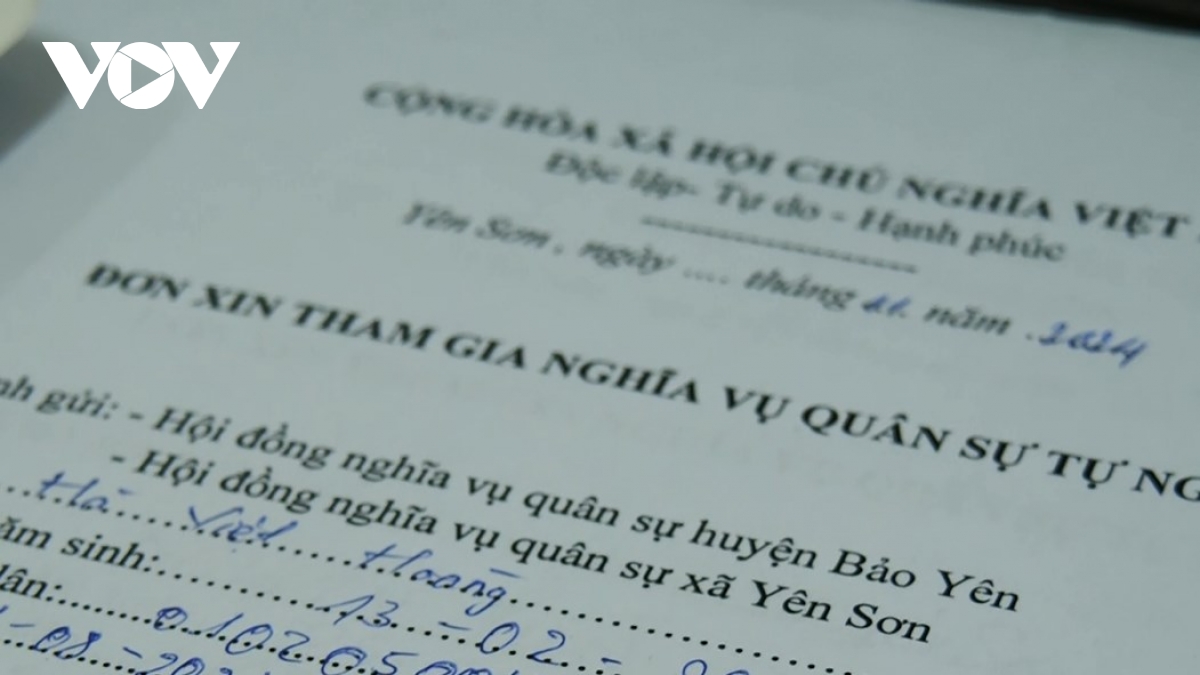 VOV
CỘNG HÒA XÃ HỘI CHỦ NGHĨA VIỆT
Độc lập- Tự do - Hạnh phúc
Yên Sơn , ngày .... tháng 11. năm .2024
ĐƠN XIN THAM GIA NGHĨA VỤ QUÂN SỰ TỰ NG
nh gửi: - Hội đồng nghĩa vụ quân sự huyện Bảo Yên
- Hội đồng nghĩa vụ quân sự xã Yên Sơn
Hà Việt Hoàng
ăm sinh: 13 - 02 -
dân: 01020500
- 08 - 202